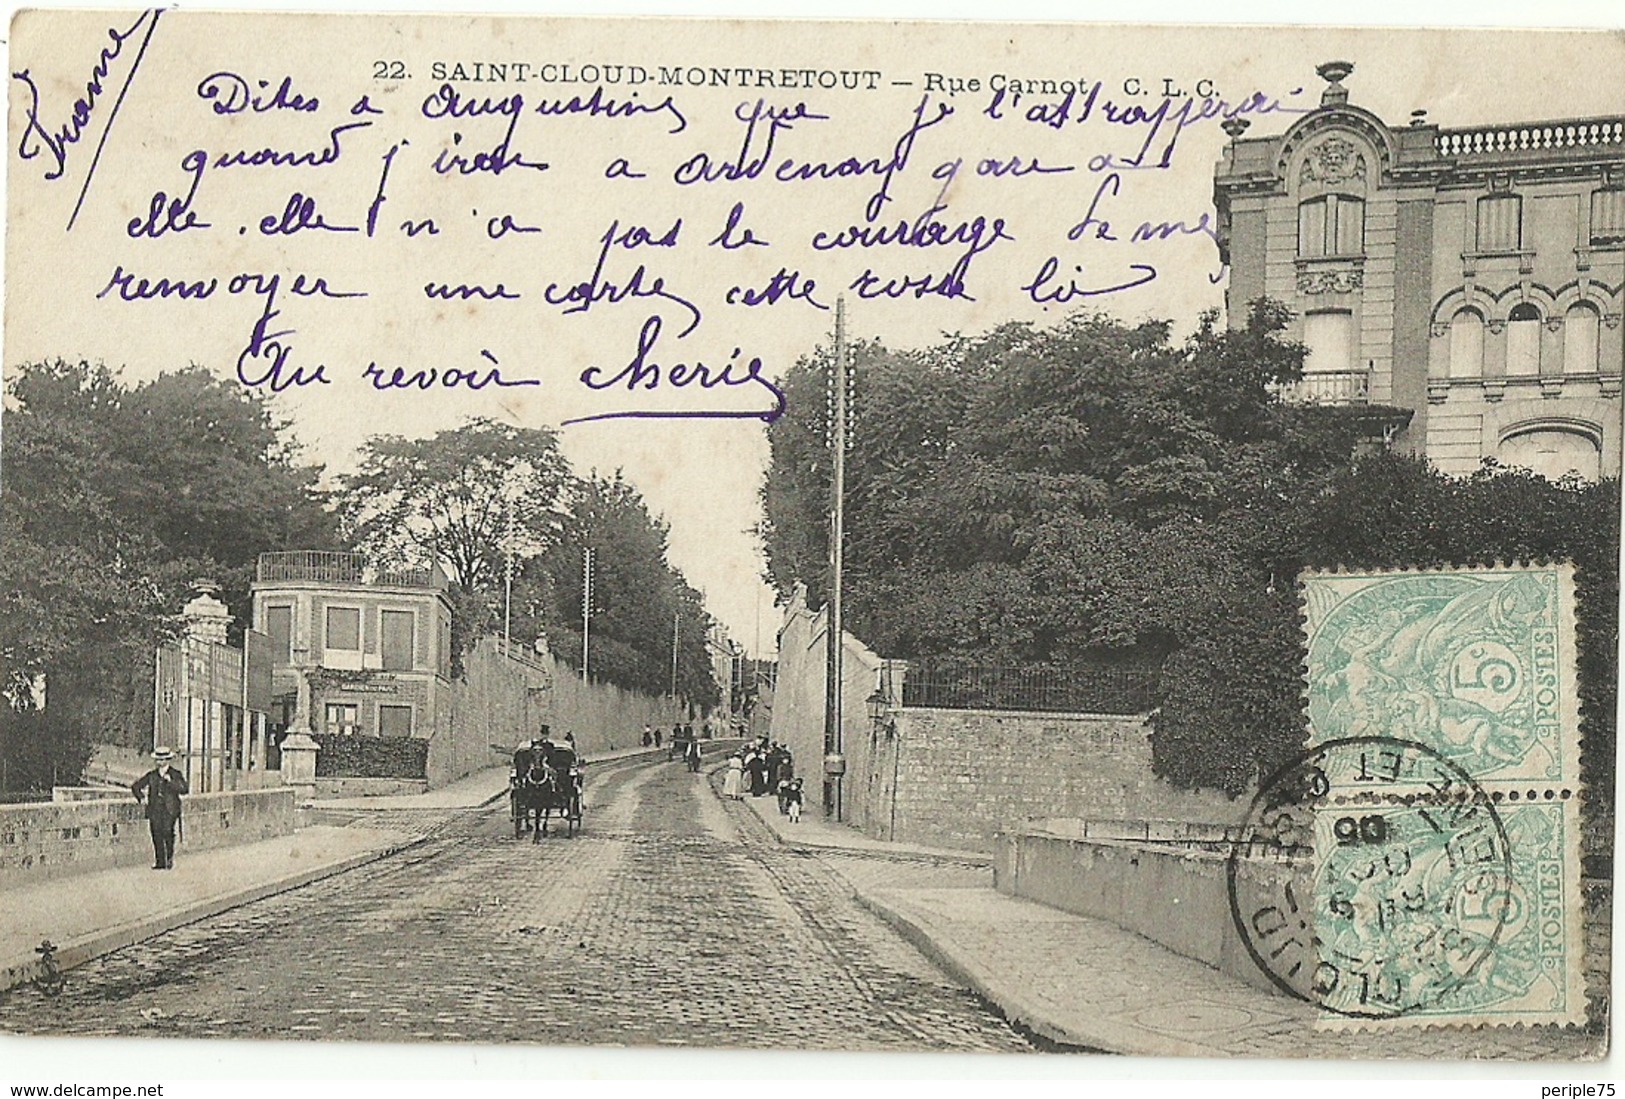 22. SAINT-CLOUD-MONTRETOUT — Rue Carnot C. L. C.
Dites a Augustine que je l'attrapperai
quand j'irai a Ardenay gare a
elle. elle n'a pas le courage de me
renvoyer une carte cette rosse là
Au revoir cherie
5c
POSTES
5c
POSTES
CLOUD
SEINE ET OISE
delcampe.net
periple75